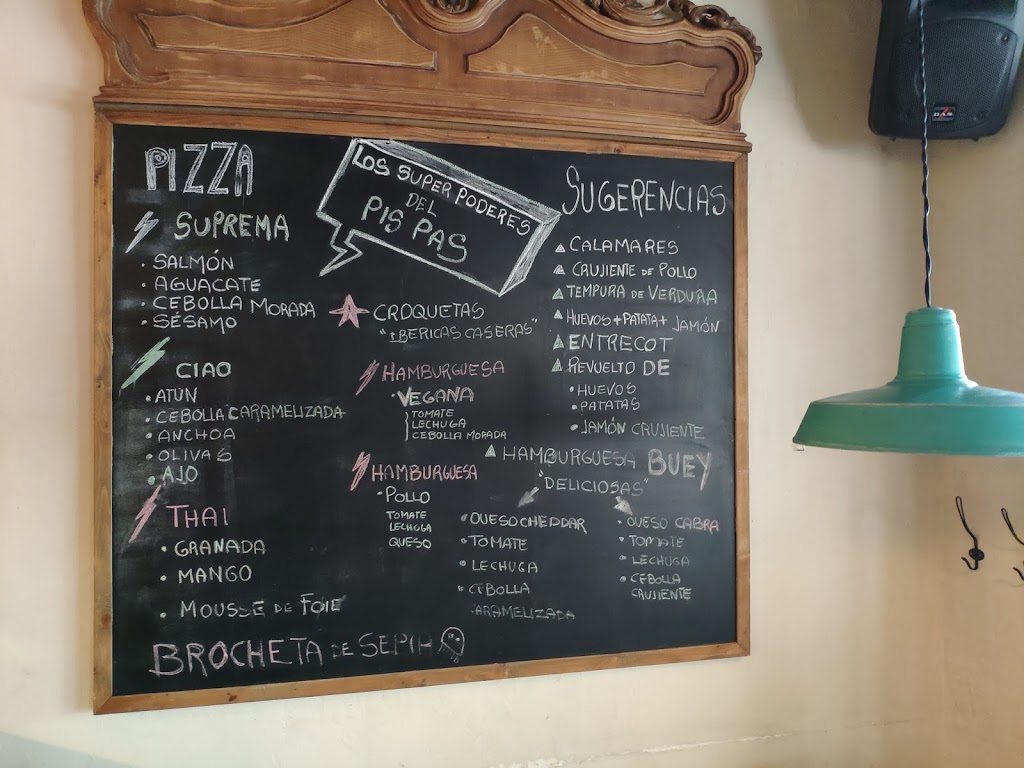 PIZZA
SUPREMA
· SALMÓN
· AGUACATE
· CEBOLLA MORADA
· SÉSAMO
CIAO
· ATÚN
· CEBOLLA CARAMELIZADA
· ANCHOA
· OLIVAS
· AJO
THAI
· GRANADA
· MANGO
· MOUSSE DE FOIE
BROCHETA DE SEPIA
LOS SUPER PODERES
DEL
PIS PAS
CROQUETAS
"IBERICAS CASERAS"
HAMBURGUESA
· VEGANA
TOMATE
LECHUGA
CEBOLLA MORADA
HAMBURGUESA
· POLLO
TOMATE
LECHUGA
QUESO
SUGERENCIAS
CALAMARES
CRUJIENTE DE POLLO
TEMPURA DE VERDURA
HUEVOS + PATATA + JAMÓN
ENTRECOT
REVUELTO DE
· HUEVOS
· PATATAS
· JAMÓN CRUJIENTE
HAMBURGUESA BUEY
"DELICIOSAS"
· QUESO CHEDDAR
· TOMATE
· LECHUGA
· CEBOLLA
CARAMELIZADA
· QUESO CABRA
· TOMATE
· LECHUGA
· CEBOLLA
CRUJIENTE
DAS